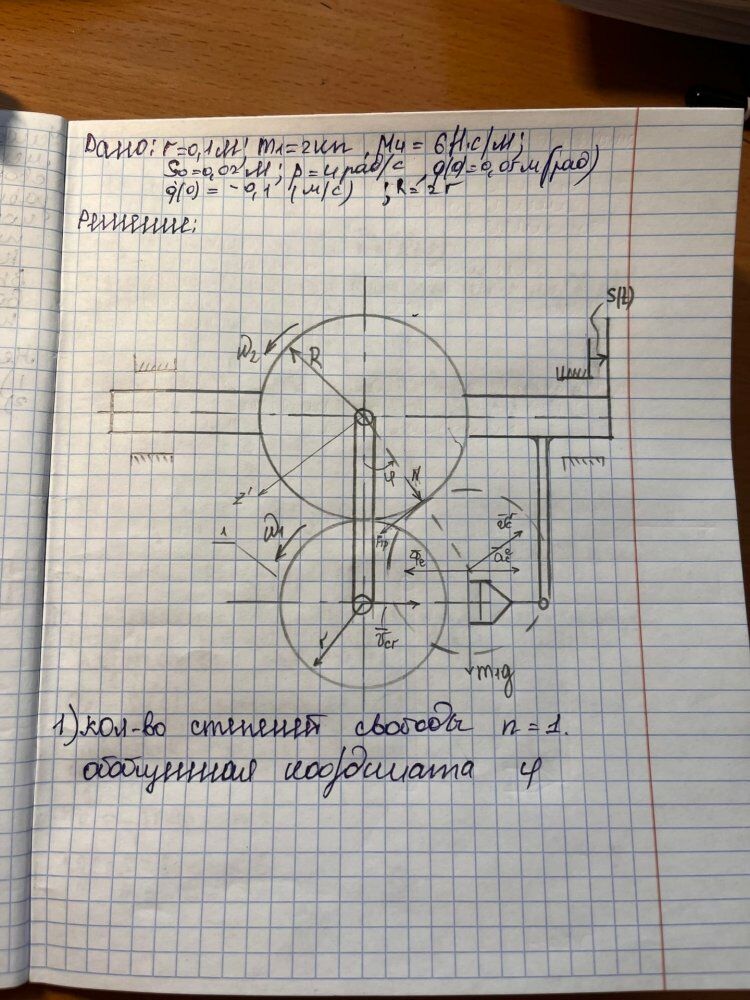 Дано: r=0,1м; m1=2кг, M4 = 6Н·с/м;
S0=0,02м; p=4рад/с, q(0)=0,05м(рад)
q̇(0) = -0,1 (м/с) ; R=2r
Решение:
S(t)
ω2
R
φ
N
z'
1
ω1
Fтр
r
m1g
1) кол-во степеней свободы n=1.
обобщенная координата φ